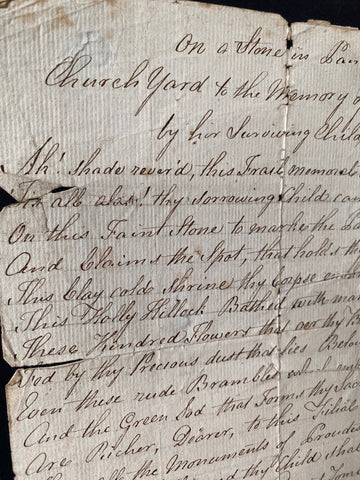 On a Stone in
Church Yard to the Memory
by her Surviving Child
Ah! shade rever'd, this Frail memorial
for all alas! thy sorrowing Child can
On this Faint Stone to mark the
And Claims the Spot, that holds th
This Clay cold shrine thy Corpse
This Holly Hillock Bathed with
These Kindred Flowers that o'er thy
Fed by thy Precious dust that lies
Even these rude Brambles
And the Green Sod that forms thy
Are Richer, Dearer, to this Filial
the Monuments of Proudes
thy Child shall